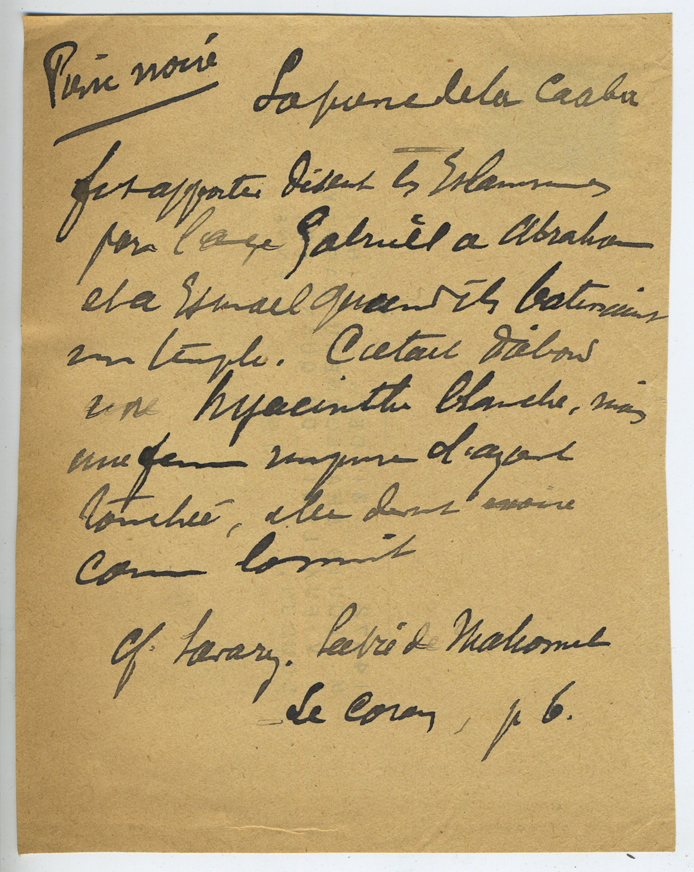 Pierre noire
La pierre de la Caaba
fut apportée disent les Islamismes
par l'ange Gabriël a Abraham
et a Esmael quand ils batissaient
un temple. C'était d'abord
une hyacinthe blanche, mais
une femme impure l'ayant
touchée, elle devint noire
comme la nuit
cf. Savary. La vie de Mahomet
Le Coran, p 6.